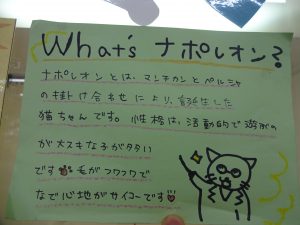 What's ナポレオン?
ナポレオンとは、マンチカンとペルシャ
の掛け合わせにより、誕生した
猫ちゃんです。性格は、活動的で遊ぶの
が大スキな子が多い
です 毛がフワフワで
なで心地がサイコーです